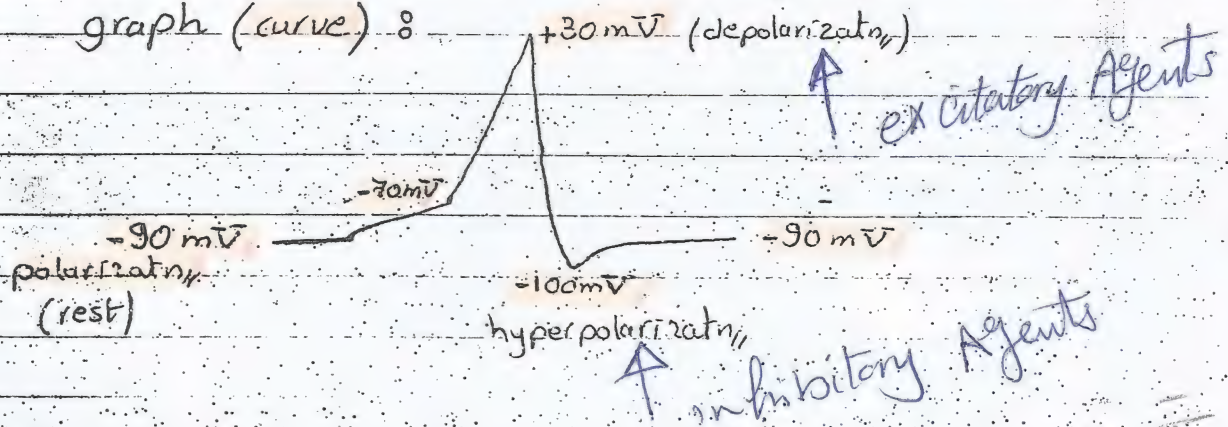 graph (curve) :
+30 mV (depolarizatn,,)
excitatory Agents
-70mV
-90 mV
polarizatn,,
(rest)
-90 mV
-100mV
hyperpolarizatn,,
inhibitory Agents